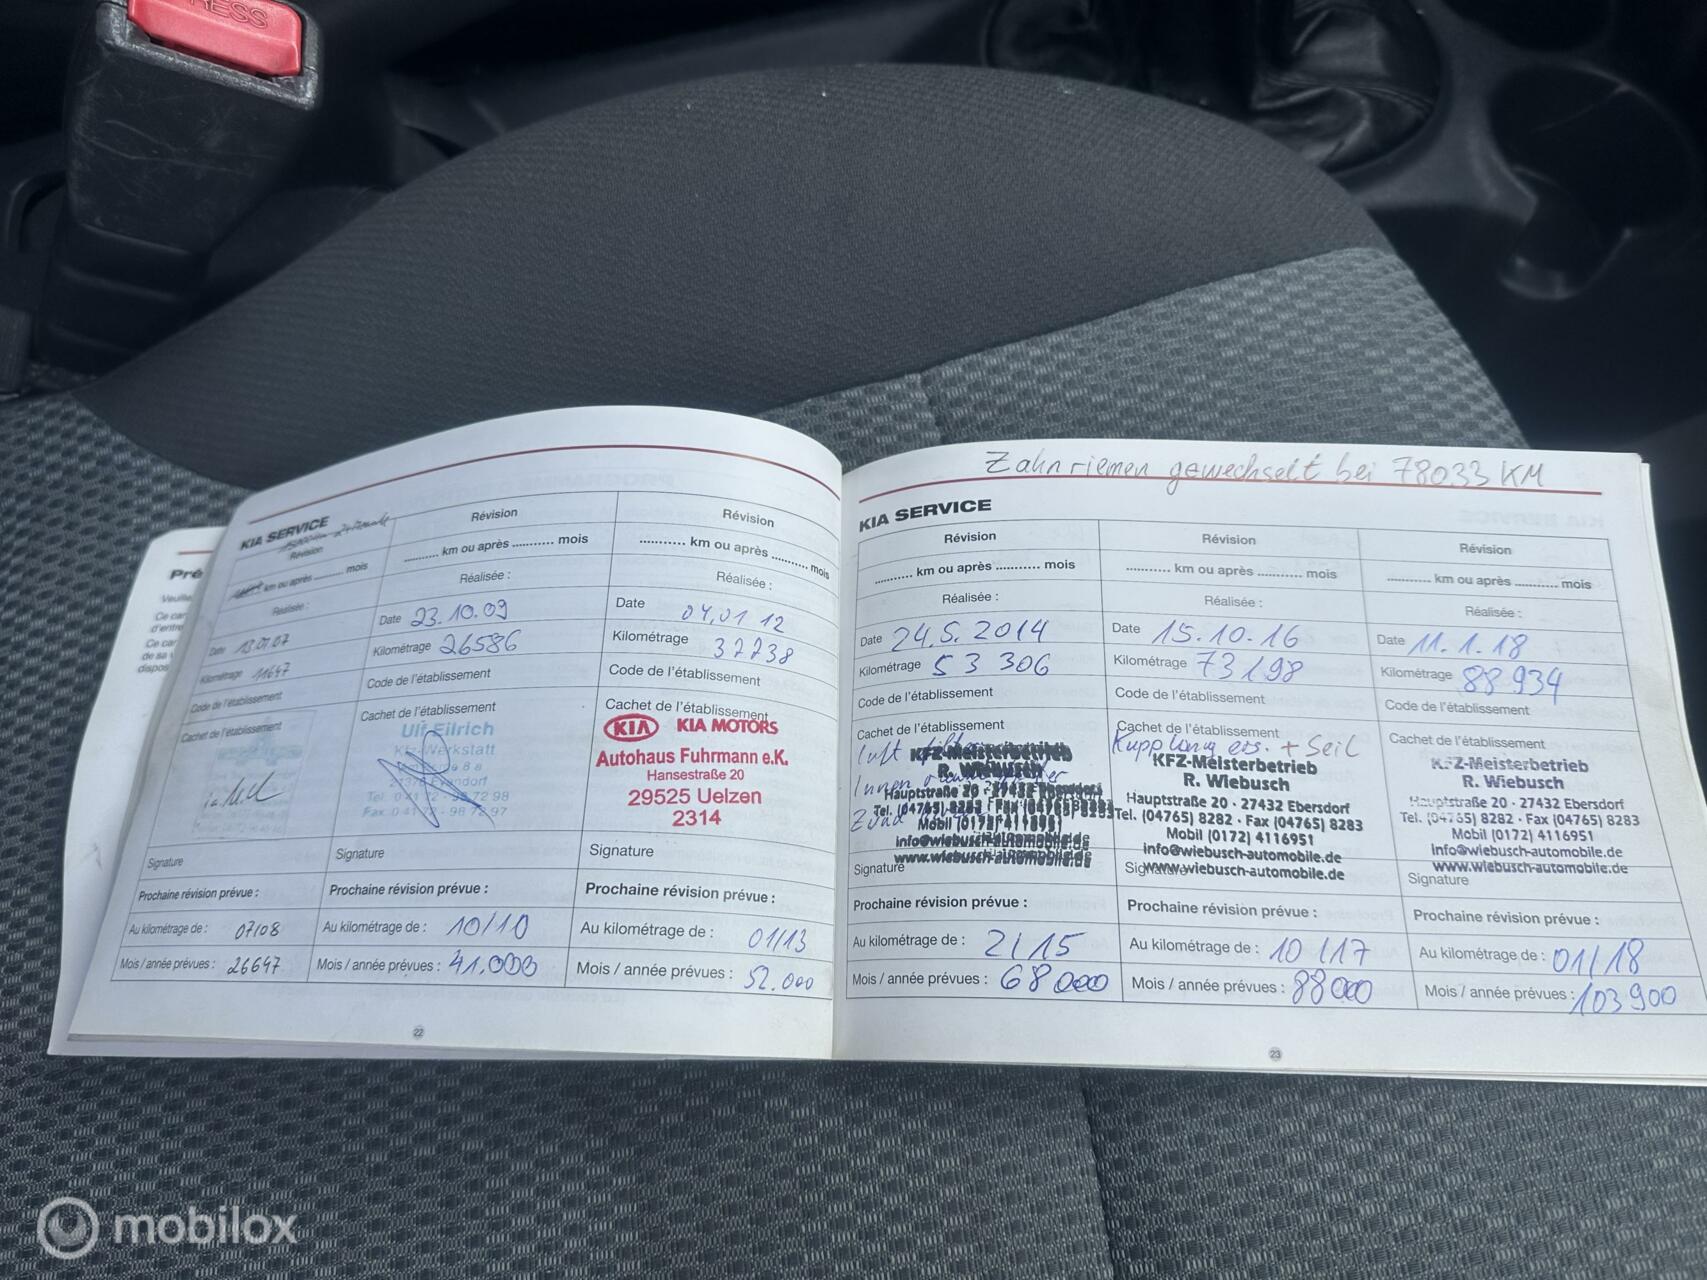 PRESS
Zahnriemen gewechselt bei 78033 KM
Pré
KIA SERVICE
Révision
km ou après .......... mois
Réalisée :
Date 13.07.07
Kilométrage 11647
Code de l'établissement
Cachet de l'établissement
Signature
Prochaine révision prévue :
Au kilométrage de : 07/08
Mois / année prévues : 26647
Révision
.......... km ou après .......... mois
Réalisée :
Date 23.10.09
Kilométrage 26586
Code de l'établissement
Cachet de l'établissement
Ulf Eilrich
Kfz-Werkstatt
Signature
Prochaine révision prévue :
Au kilométrage de : 10/10
Mois / année prévues : 41.000
Révision
.......... km ou après .......... mois
Réalisée :
Date 04.01 12
Kilométrage 37238
Code de l'établissement
Cachet de l'établissement
KIA KIA MOTORS
Autohaus Fuhrmann e.K.
Hansestraße 20
29525 Uelzen
2314
Signature
Prochaine révision prévue :
Au kilométrage de : 01/13
Mois / année prévues : 52.000
22
KIA SERVICE
Révision
.......... km ou après .......... mois
Réalisée :
Date 24.5.2014
Kilométrage 53 306
Code de l'établissement
Cachet de l'établissement
KFZ-Meisterbetrieb
R. Wiebusch
Hauptstraße 20 · 27432 Ebersdorf
Tel. (04765) 8282 · Fax (04765) 8283
Mobil (0172) 4116951
info@wiebusch-automobile.de
www.wiebusch-automobile.de
Signature
Prochaine révision prévue :
Au kilométrage de : 2/15
Mois / année prévues : 68000
Révision
.......... km ou après .......... mois
Réalisée :
Date 15.10.16
Kilométrage 73198
Code de l'établissement
Cachet de l'établissement
Kupplung ers. + Seil
KFZ-Meisterbetrieb
R. Wiebusch
Hauptstraße 20 · 27432 Ebersdorf
Tel. (04765) 8282 · Fax (04765) 8283
Mobil (0172) 4116951
info@wiebusch-automobile.de
www.wiebusch-automobile.de
Signature
Prochaine révision prévue :
Au kilométrage de : 10/17
Mois / année prévues : 88000
Révision
.......... km ou après .......... mois
Réalisée :
Date 11.1.18
Kilométrage 88 934
Code de l'établissement
Cachet de l'établissement
KFZ-Meisterbetrieb
R. Wiebusch
Hauptstraße 20 · 27432 Ebersdorf
Tel. (04765) 8282 · Fax (04765) 8283
Mobil (0172) 4116951
info@wiebusch-automobile.de
www.wiebusch-automobile.de
Signature
Prochaine révision prévue :
Au kilométrage de : 01/18
Mois / année prévues : 103900
23
mobilox